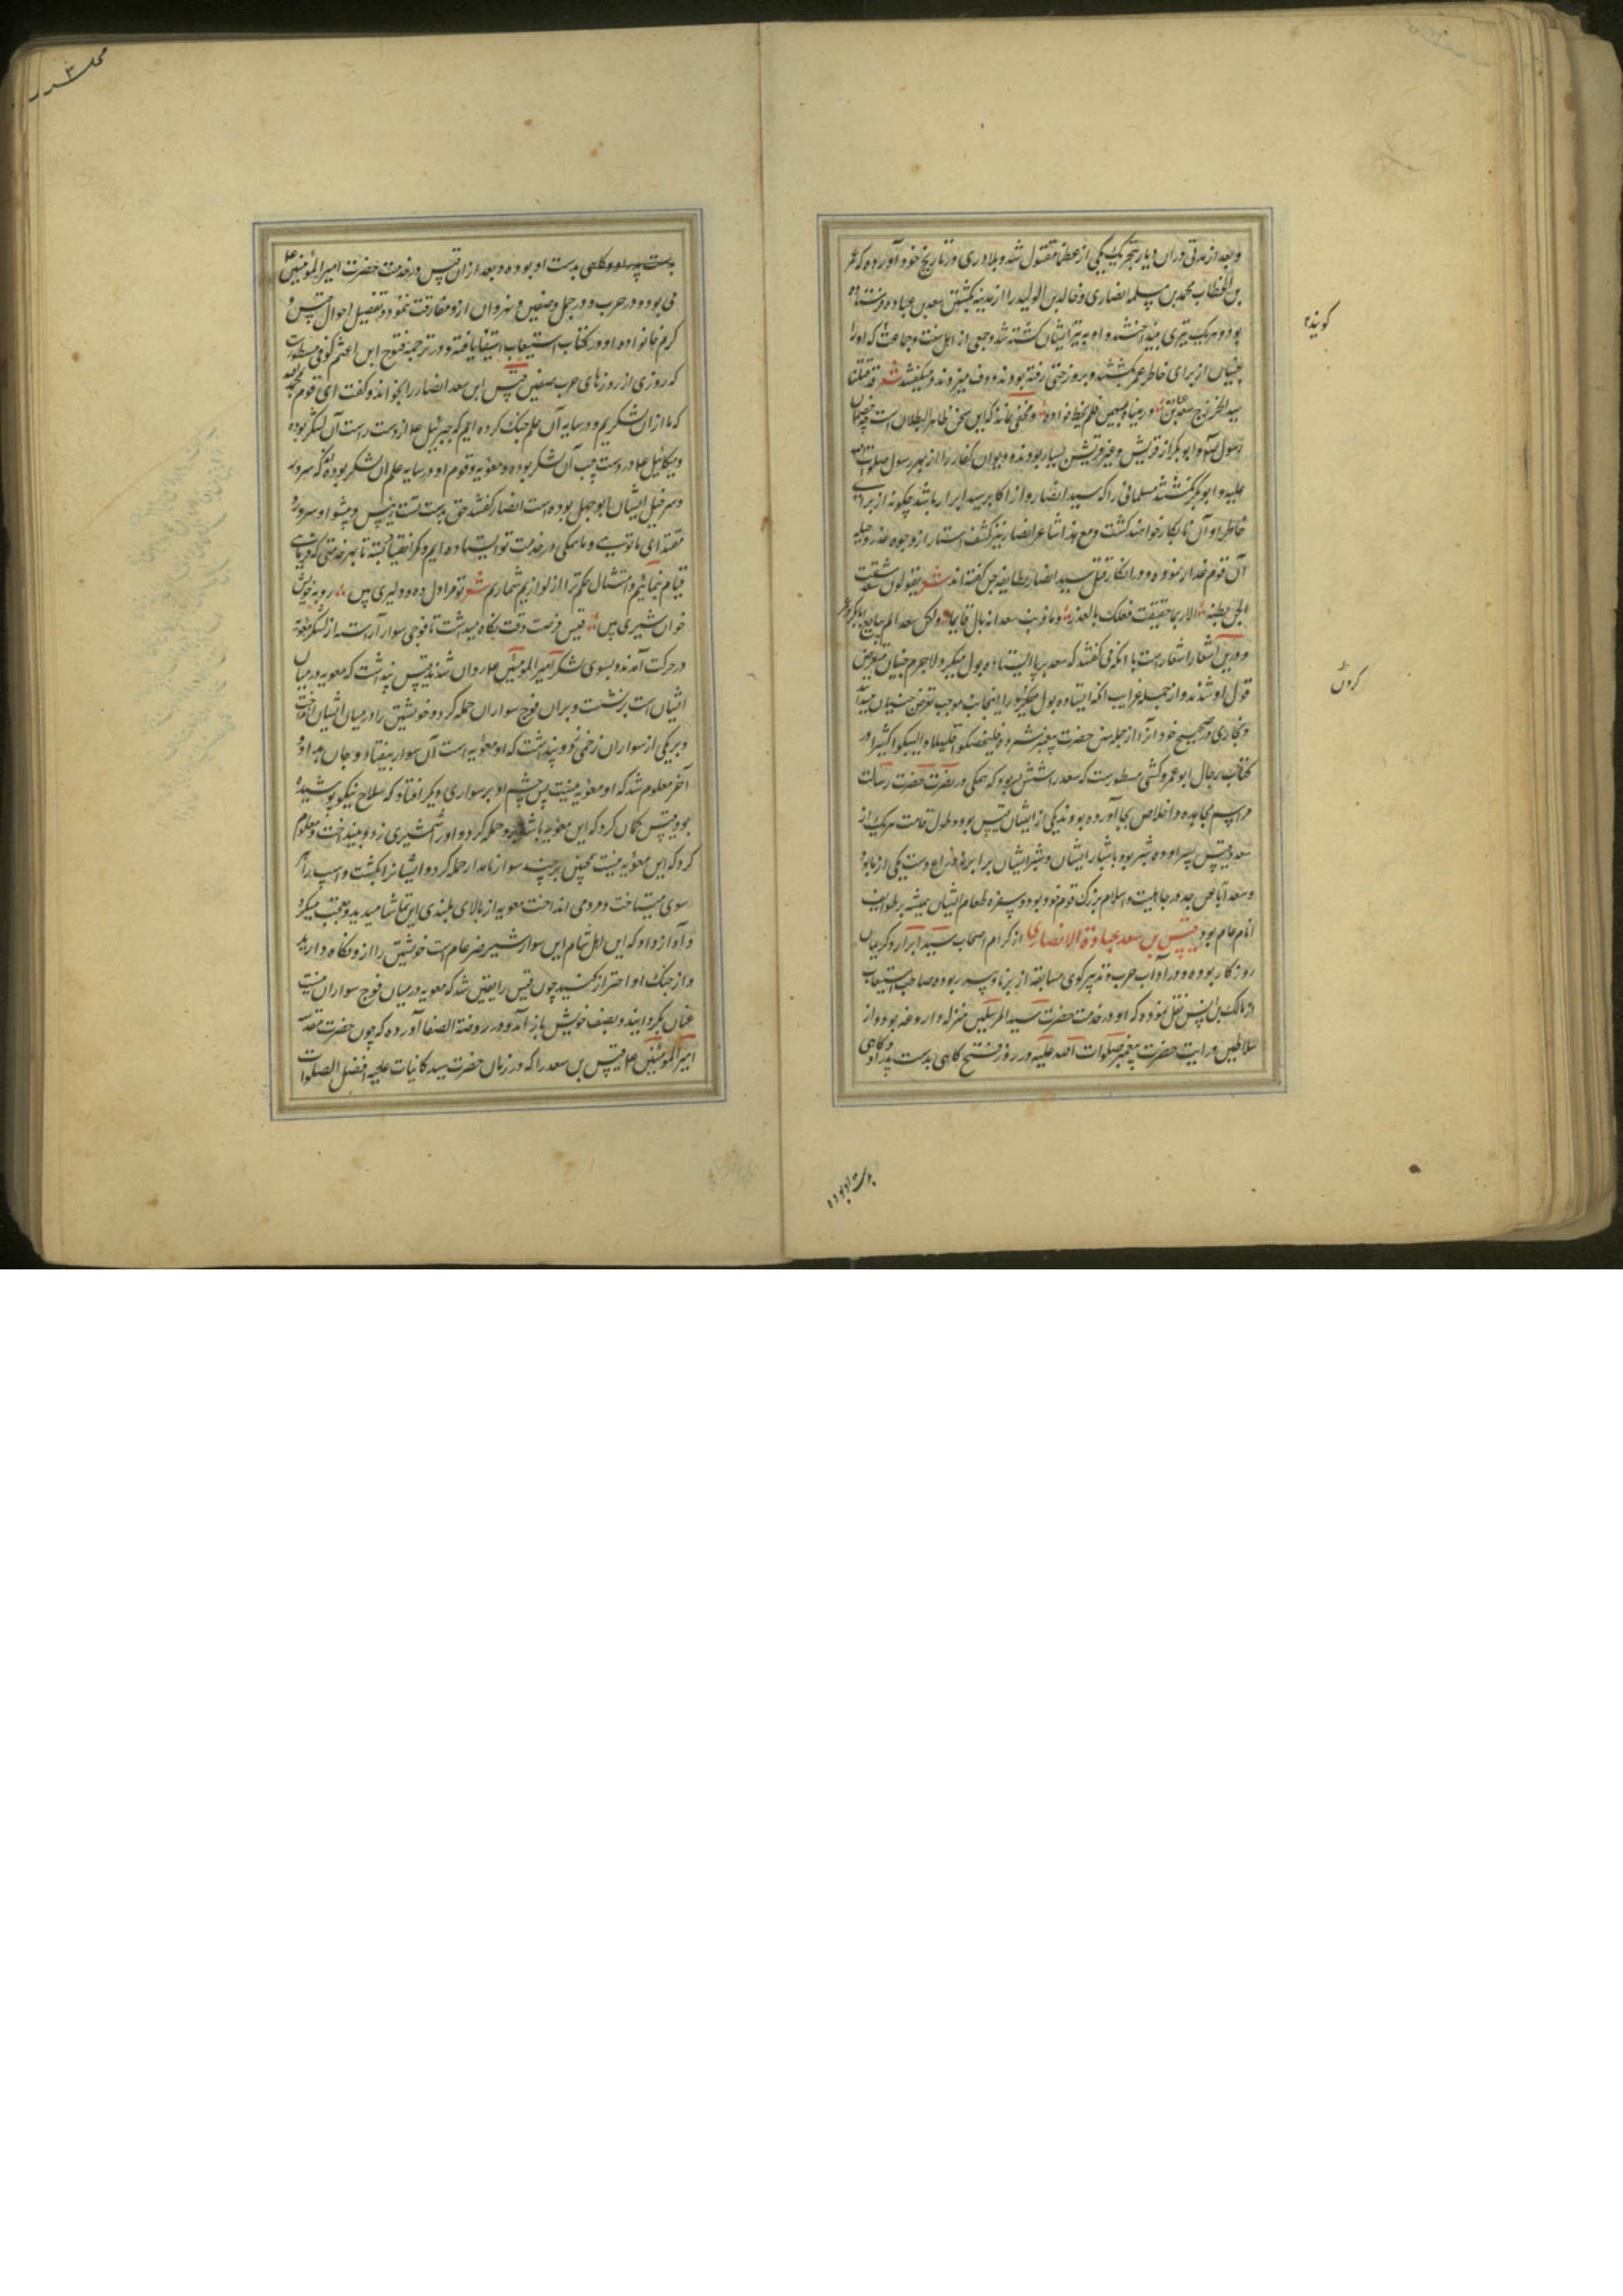 و بعد از مدتی در ان دیار بتحریک یکی از عظما مقتول شد و بلادری در تاریخ خود آورده که عمر
بن الخطاب محمد بن مسلمه انصاری و خالد بن الولید را از مدینه بکشتن سعد بن عباده فرستاده
بود و هر یک تیری بینداختند و او به تیر ایشان کشته شد و جمعی از اهل سنت و جماعت که او را
جنیان از برای خاطر عمر بکشتند و بروز حتی رفته بودند و دف میزدند و میگفتند شعر قد قتلنا
سید الخزرج سعد بن عباده ورمیناه بسهمین فلم یخط فواده و مخفی نماند که این سخن ظاهر البطلان است چه خصمان
رسول و ابو بکر از قریش و غیر قریش بسیار بودند و دیوان کفار را از بهر رسول صلوات الله
علیه و ابو بکر نکشتند مسلمانی را که سید انصار و از اکابر سید ابرار باشد چگونه از برای
خاطر او آن نابکار خواهند کشت و مع هذا شاعر انصار نیز کشف استار از وجوه غدر و حیله
آن قوم غدار نموده و در انکار قتل سید انصار بطایفه جن گفته اند شعر یقولون سعد شقت
الجن بطنه الا ربما حققت فعلک بالعذر وما ذنب سعد انه بال قایما ولکن سعدا لم یبایع ابا بکر
و درین اشعار اشعار است با انکه می گفتند که سعد بر پا ایستاده بول میکرد لاجرم جنیان متعرض
قتل او شدند و از جمله غرایب انکه ایستاده بول میکرد را اینجانب موجب تعرض جنیان میدانند
و بخاری در صحیح خود انرا از جمله سنن حضرت پیغمبر شمرده فلیضحکوا قلیلا ولیبکوا کثیرا و در
کتاب رجال ابو عمرو کشی مسطورست که سعد را شش پسر بود که همگی در نصرت حضرت رسالت
مراسم مجاهده و اخلاص بجا آورده بودند یکی از ایشان قیس بود و طول قامت هر یک از
سعد و قیس پسر او ده شبر بود باشبار ایشان و شبر ایشان برابر ذراع دست یکی از ما بود
و سعد آبا عن جد در جاهلیت و اسلام بزرگ قوم خود بود و سفره طعام ایشان همیشه بر طوایف
انام عام بود قیس بن سعد عبادة الانصاری از کرام اصحاب سید ابرار و کریمان
روزکار بوده و در آداب حرب و تدبیر کوی مسابقه از برنا و پیر ربوده صاحب استیعاب
از مالک بن انس نقل نموده که او در خدمت حضرت سید المرسلین منزله داروغه بود و از
سلاطین و رایت حضرت پیغمبر صلوات الله علیه در روز فتح کاهی بدست پدر او و کاهی
کوینده
کردن
بدست او بوده
محلس ۳
بدست پدر او و کاهی بدست او بوده و بعد از ان قیس در خدمت حضرت امیر المؤمنین ع
می بود و در حرب و در جمل و صفین و نهروان از و مفارقت ننمود و تفصیل احوال قیس و
کرم خانواده او در کتاب استیعاب استیفا یافته و در ترجمه فتوح ابن اعثم کوفی مسطورست
که روزی از روزهای حرب صفین قیس ابن سعد انصار را بخواند و گفت ای قوم بحمد الله
که ما از ان لشکریم و در سایه آن علم جنک کرده ایم که جبرئیل ع از دست راست آن لشکر بوده
و میکائیل ع در دست چپ آن لشکر بوده و معویه و قوم او در سایه علم ان لشکر بوده که سرور
و سرخیل ایشان ابو جهل بوده است انصار گفتند حق بدست تست رئیس و پیشوا و سرور و
مقتدای ما توئی و ما همگی در خدمت تو ایستاده ایم و کمر انقیاد بسته تا بهر خدمتی که فرمائی
قیام نمائیم و امتثال حکم ترا از لوازیم شماریم شعر تو مرا دل ده و دلیری بین روبه خویش
خوان شیری بین قیس فرصت وقت نگاه میداشت تا فوجی سوار آراسته از لشکر معویه
در حرکت آمدند و بسوی لشکر امیر المومنین ع روان شدند قیس پنداشت که معویه در میان
ایشان است برنشست و بران فوج سواران حمله کرد و خویشتن را در میان ایشان انداخت
و بر یکی از سواران زخمی زد و پنداشت که او معویه است آن سوار بیفتاد و جان بداد و
آخر معلوم شد که او معویه نیست پس چشم او بر سواری دیگر افتاد که سلاح نیکو پوشیده
بود قیس گمان کرد که این معویه باشد برو حمله کرد و او را شمشیری زد و بینداخت و معلوم
کرد که این معویه نیست همچنین بر چند سوار نامدار حمله کرد و ایشانرا بکشت و اسب را هر
سوی میتاخت و مردمی انداخت معویه از بالای بلندی این تماشا میدید و تعجب میکرد
و آواز داد که این اهل شام این سوار شیر ضرغام است خویشتن را ازو نگاه دارید
و از جنک او احتراز کنید چون قیس را یقین شد که معویه در میان فوج سواران نیست
عنان بگردانید و بصف خویش باز آمد و در روضة الصفا آورده که چون حضرت مقدس
امیر المؤمنین ع قیس بن سعد را که در زمان حضرت سید کانیات علیه افضل الصلوات